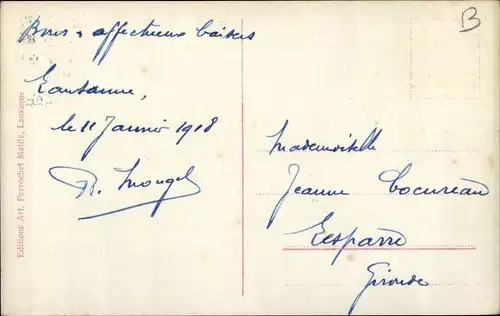 Bons & affectueux baisers
Lausanne,
le 11 Janvier 1918
R. Mougel
Mademoiselle
Jeanne Cocureau
Lesparre
Gironde
B
Editions Art. Perrochet Matile, Lausanne